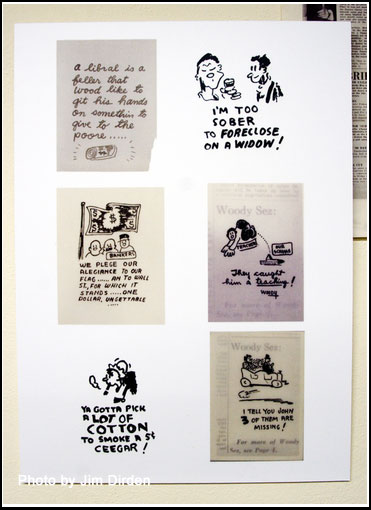 a libral is a
feller that
wood like to
git his hands
on somethin to
give to the
poore .....
I'M TOO
SOBER
TO FORECLOSE
ON A WIDOW!
$ $
$ $
BANKERS
WE PLEGE OUR
ALEGIANCE TO OUR
FLAG ..... AN TO WALL
ST, FOR WHICH IT
STANDS ..... ONE
DOLLAR, UNGETTABLE
.....
Woody Sez:
TEACHER
OUR
They caught
him a teaching!
WOODY
For more of Woody
YA GOTTA PICK
A LOT OF
COTTON
TO SMOKE A 5¢
CEEGAR!
Woody Sez:
I TELL YOU JOHN
3 OF THEM ARE
MISSING!
For more of Woody
Sez, see Page 4.
Photo by Jim Dirden